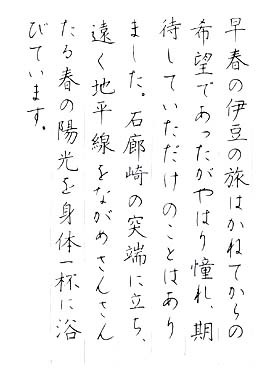 早春の伊豆の旅はかねてからの
希望であったがやはり憧れ、期
待していただけのことはあり
ました。石廊崎の突端に立ち、
遠く地平線をながめさんさん
たる春の陽光を身体一杯に浴
びています。